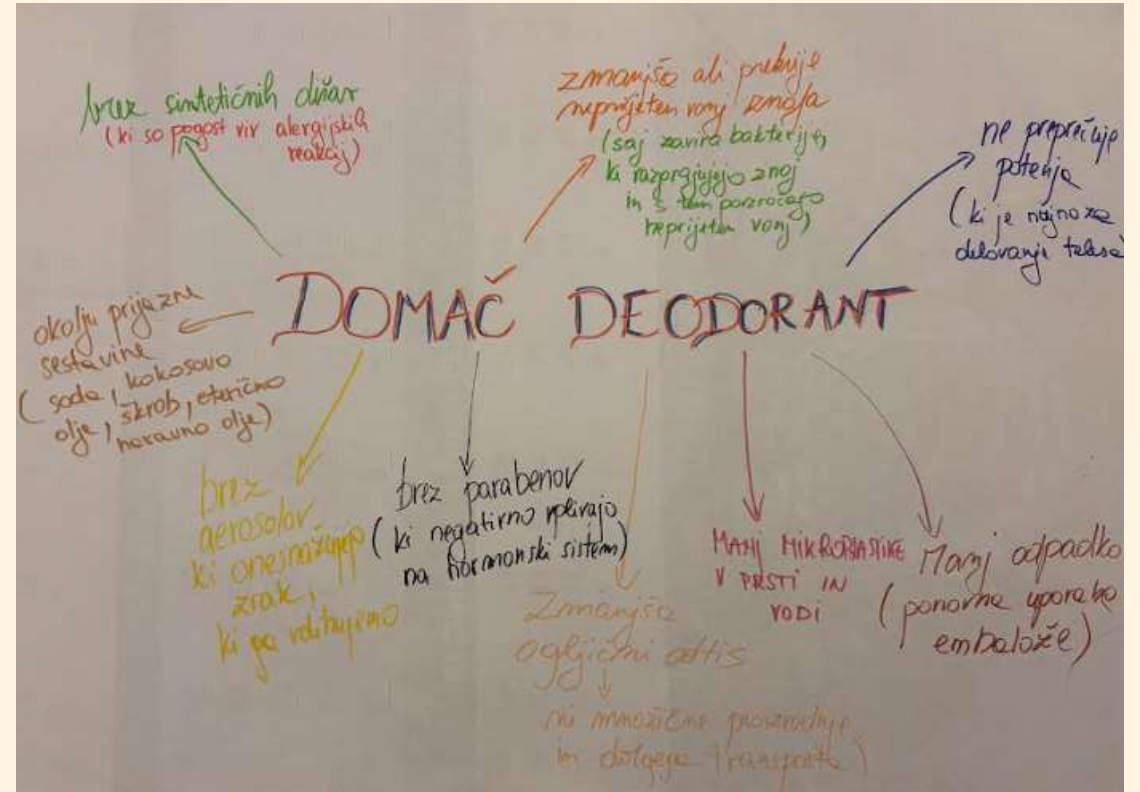 brez sintetičnih dišav
(ki so pogost vir alergijskih
reakcij)
zmanjša ali prekrije
neprijeten vonj znoja
(saj zavira bakterije,
ki razgrajujejo znoj
in s tem povzročajo
neprijeten vonj)
ne preprečuje
potenja
(ki je nujno za
delovanje telesa
DOMAČ DEODORANT
okolju prijazne
sestavine
(soda, kokosovo
olje, škrob, eterično
naravno olje)
brez
aerosolov
ki onesnažujejo
zrak,
ki ga vdihujemo
brez parabenov
(ki negativno vplivajo
na hormonski sistem)
Zmanjša
ogljični odtis
ni množične proizvodnje
in dolgega transporta)
MANJ MIKROPLASTIKE
V PRSTI IN
VODI
Manj odpadkov
(ponovna uporaba
embalaže)